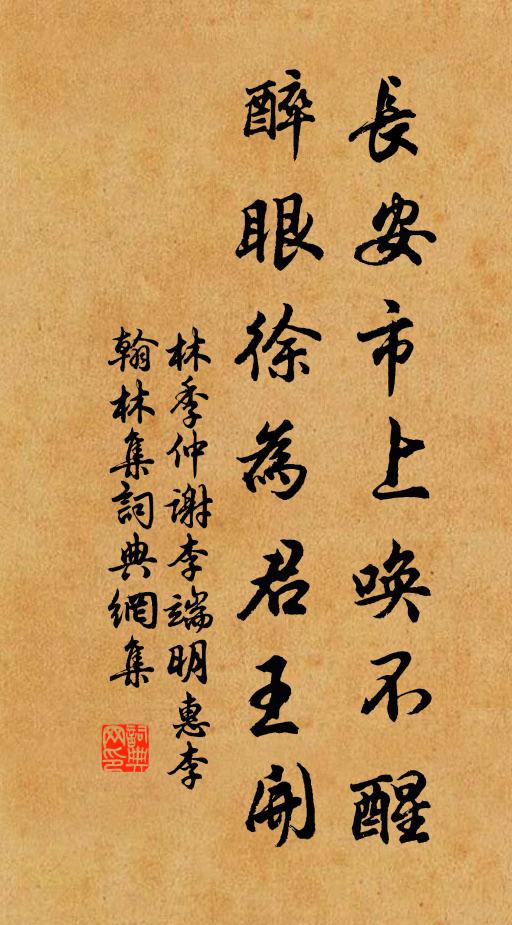 長安市上喚不醒
醉眼徐為君王開
林季仲謝李端明惠李
翰林集詞典網集
詞典網印